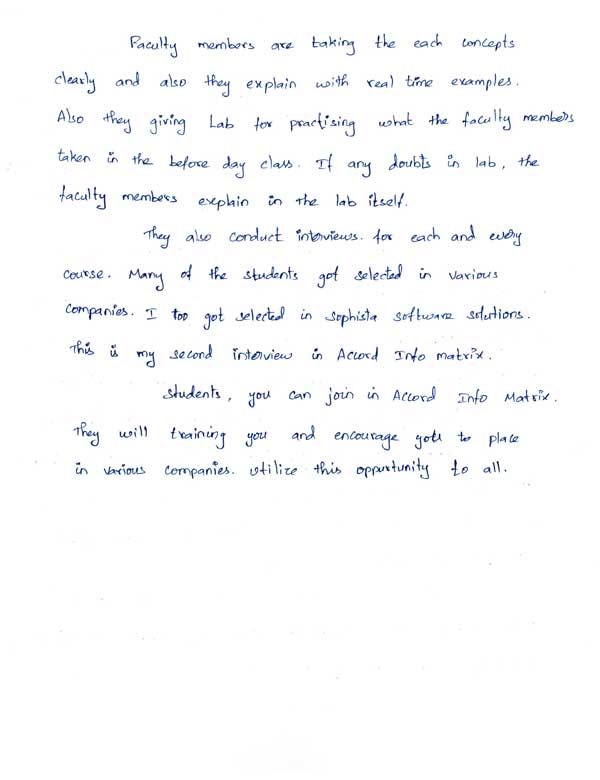 Faculty members are taking the each concepts
clearly and also they explain with real time examples.
Also they giving Lab for practising what the faculty members
taken in the before day class. If any doubts in lab, the
faculty members explain in the lab itself.
They also conduct interviews. for each and every
course. Many of the students got selected in various
companies. I too got selected in sophista software solutions.
This is my second interview in Accord Info matrix.
students, you can join in Accord Info Matrix.
They will training you and encourage you to place
in various companies. utilize this oppurtunity to all.